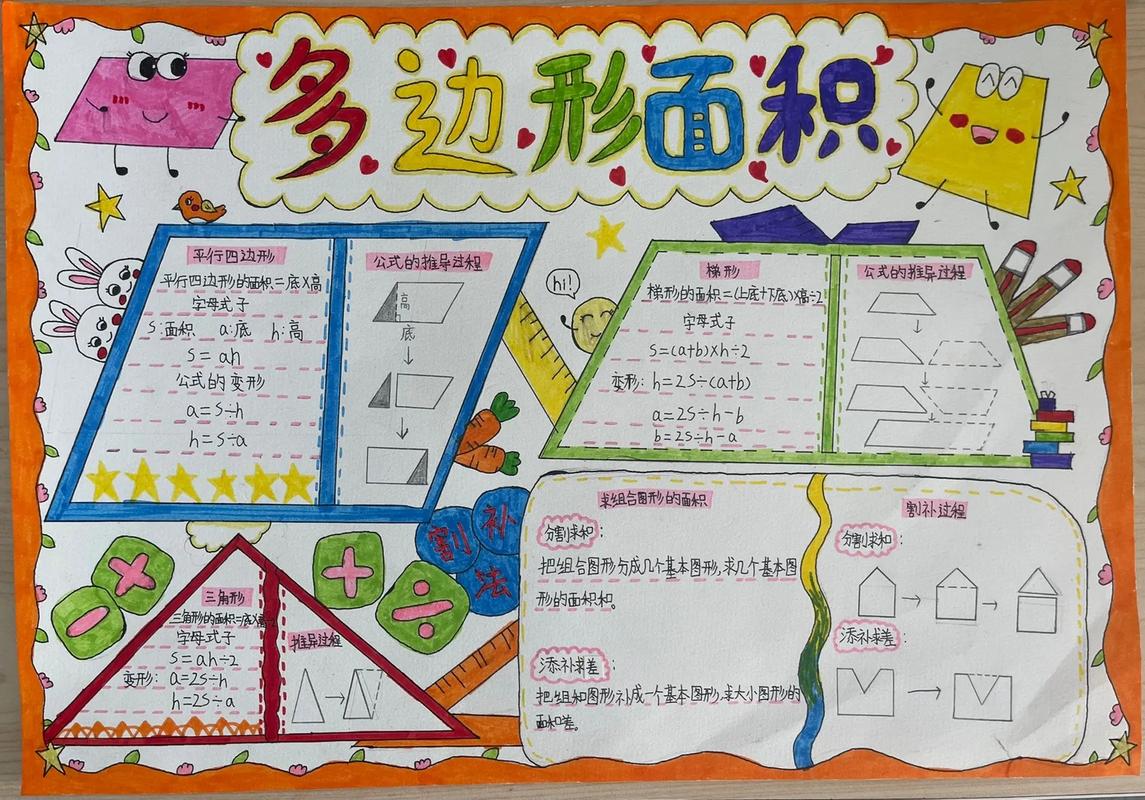 多边形面积
平行四边形
平行四边形的面积=底×高
字母式子
S:面积 a:底 h:高
S=ah
公式的变形
a=S÷h
h=S÷a
公式的推导过程
高
底
hi!
梯形
梯形的面积=(上底+下底)×高÷2
字母式子
S=(a+b)×h÷2
变形: h=2S÷(a+b)
a=2S÷h-b
b=2S÷h-a
公式的推导过程
割补法
× - + ÷
三角形
三角形的面积=底×高÷2
字母式子
S=ah÷2
变形: a=2S÷h
h=2S÷a
推导过程
求组合图形的面积
分割求和:
把组合图形分成几个基本图形,求几个基本图
形的面积和。
添补求差:
把组和图形补成一个基本图形,求大小图形的
面和差。
割补过程
分割求和:
添补求差: